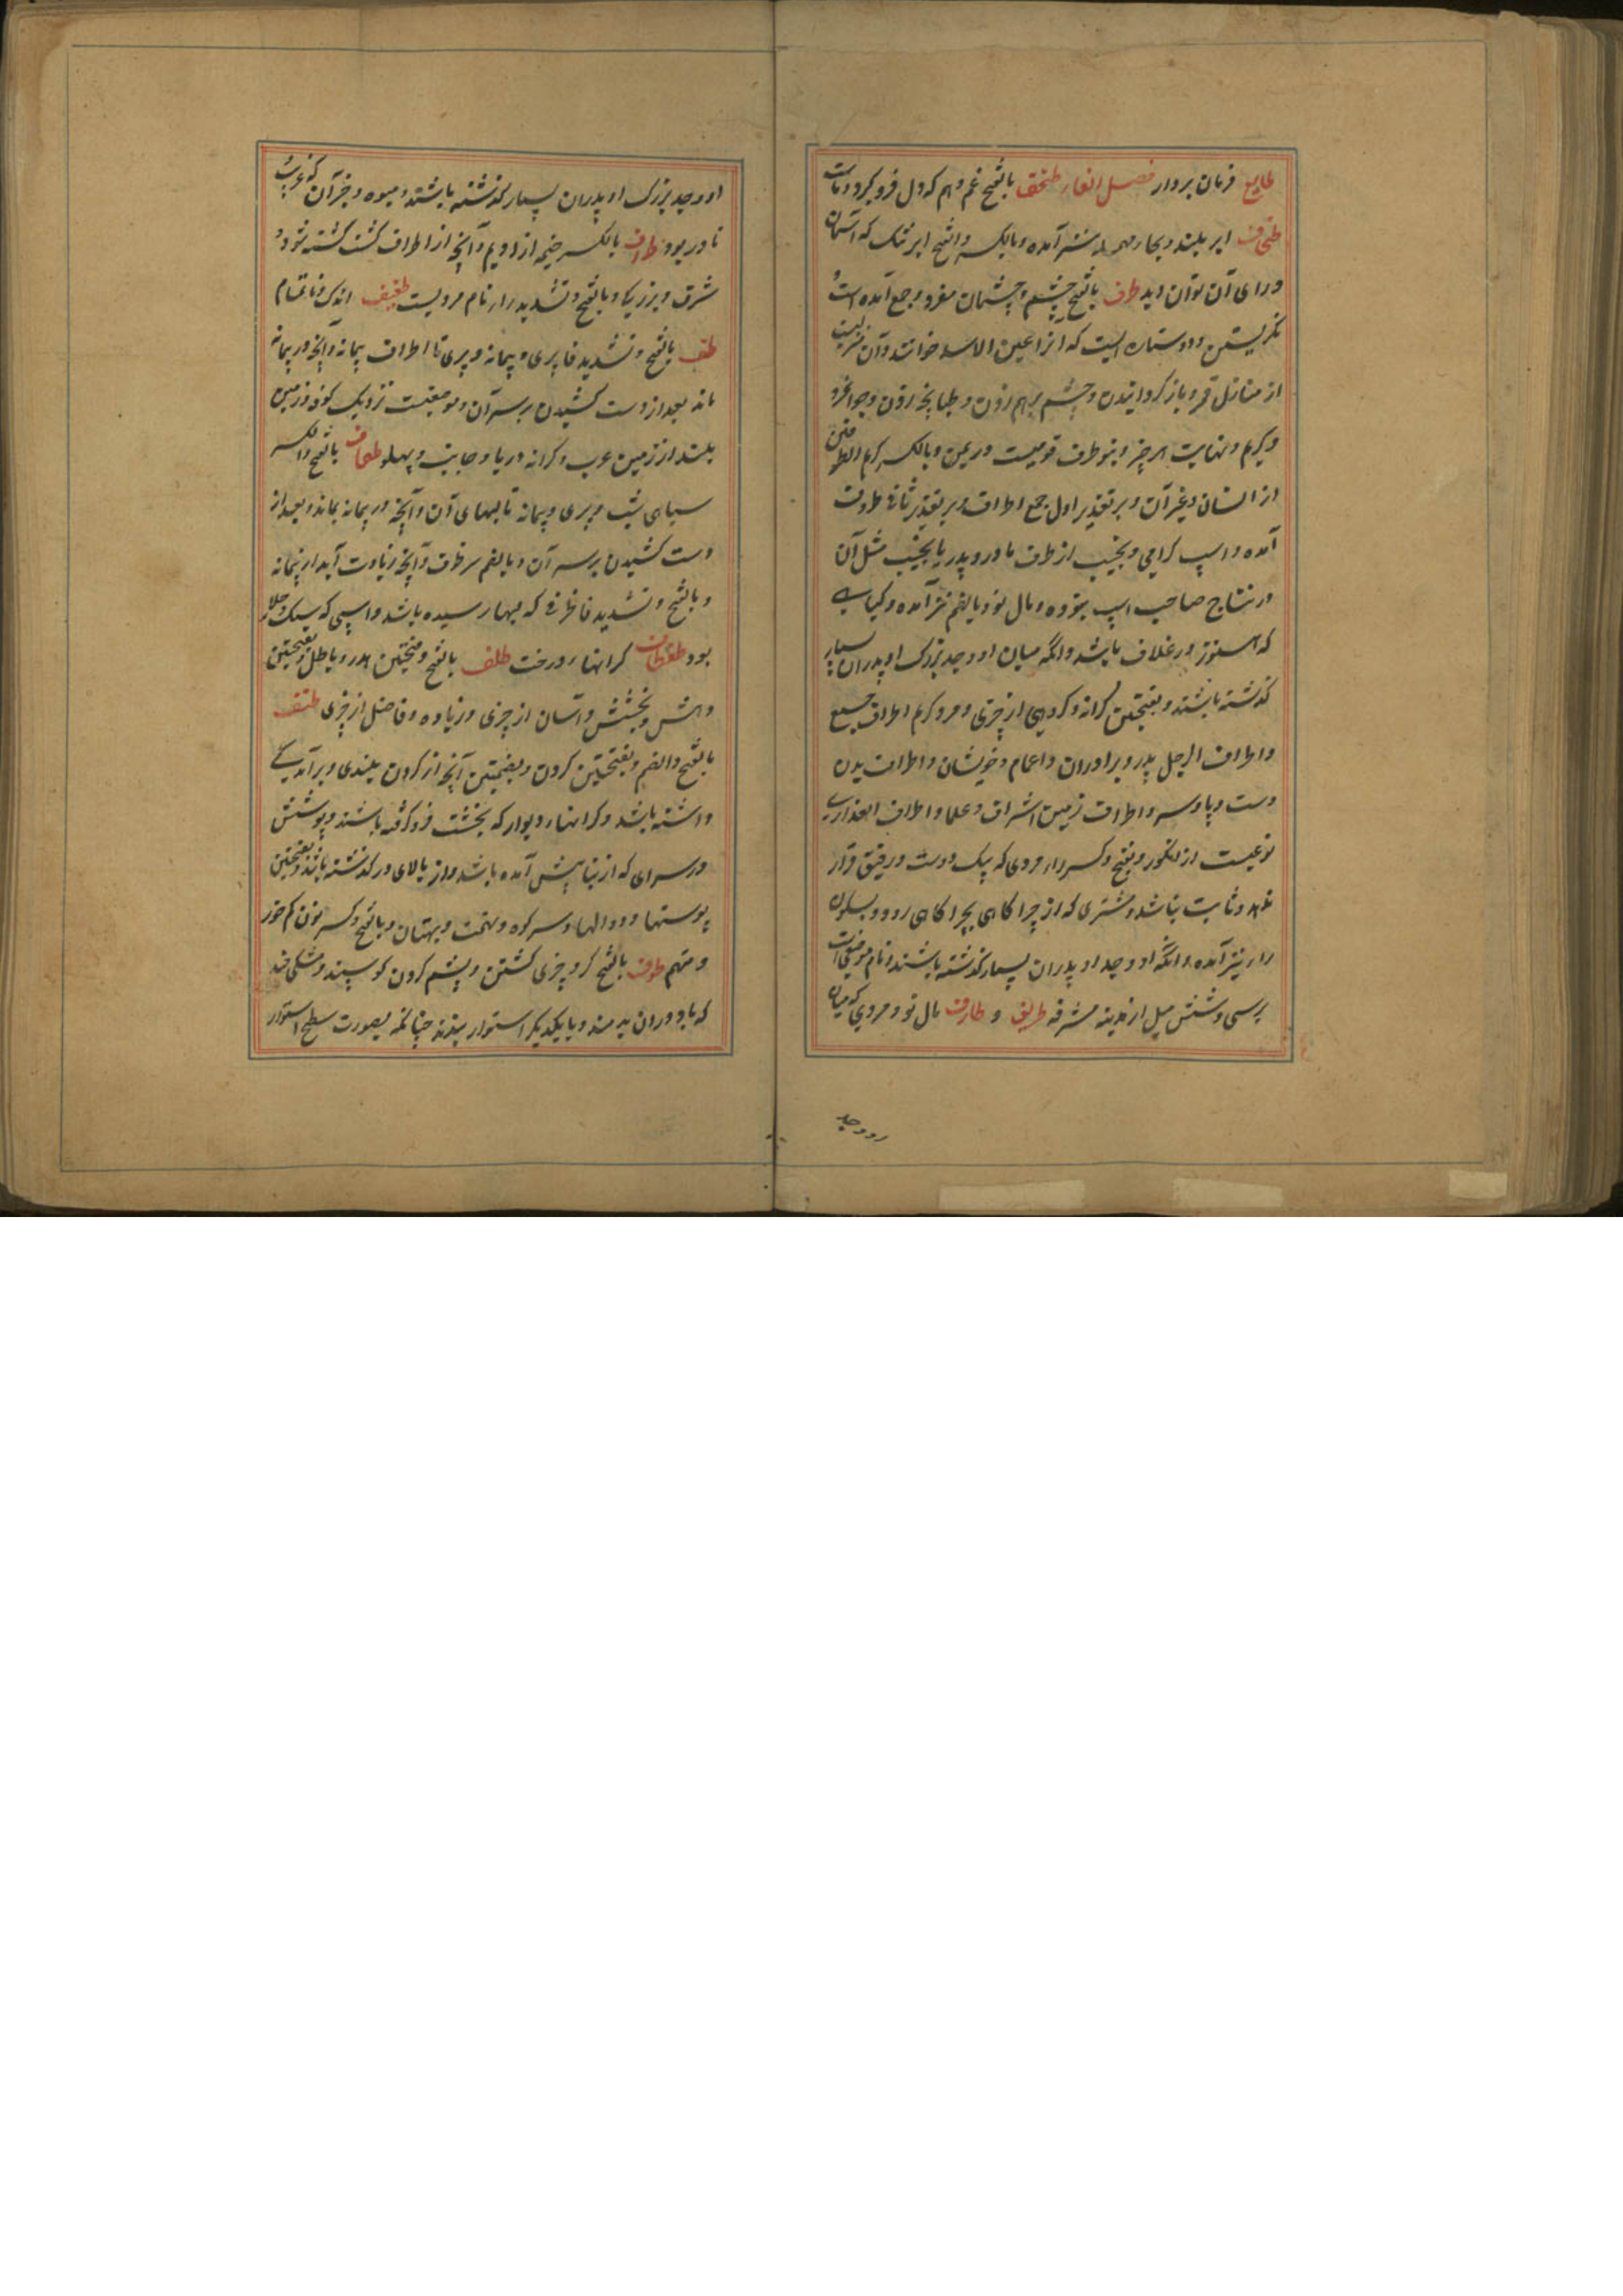 طایع فرمان بردار فصل الفاء طخف بالفتح غم و هم که دل فرو گیرد و نام است
طخاف ابر بلند و بحاء مهمله نیز آمده و بالکسر و الفتح ابر تنک که آسمان
ورای آن توان دید طرف بالفتح چشم و چشمان مفرد و جمع آمده است و
نگریستن و دو ستاره ایست که آنرا عین الاسد خوانند و آن منزلیست
از منازل قمر و باز گردانیدن و چشم برهم زدن و طپانچه زدن و جوانمرد
و کریم و نهایت هر چیز و بنو طرف قومیست در یمن و بالکسر کریم الطرفین
از انسان و غیر آن و بر تقدیر اول جمع اطراف و بر تقدیر ثانی طروف
آمده و اسپ گرامی و نجیب از طرف مادر و پدر یا نجیب مثل آن
در نتاج صاحب اسپ بنوده و مال نو و بالضم نیز آمده و گیاهی
که هنوز در غلاف باشد و انکه میان او و جد بزرک او پدران بسیار
گذشته باشند و بفتحتین کرانه و گروهی از چیزی و مرد کریم اطراف جمع
و اطراف الرجل پدر و برادران و اعمام و خویشان و اطراف بدن
دست و پا و سر و اطراف زمین اشراف و علما و اطراف العذاری
نوعیست از انگور و بفتح و کسر راء مردی که بیک دوست و رفیق قرار
ندهد و ثابت نباشد و شتری که از چراگاهی بچراگاهی رود و بسکون
راء نیز آمده و انکه او و جد او پدران بسیار گذشته باشند و نام موضعی است
بر سی و شش میل از مدینه مشرفه طریف و طارف مال نو و مردی که میان
او و جد
او و جد بزرک او پدران بسیار گذشته باشند و میوه و جز آن که غریب
نادر بود طراف بالکسر خیمه از ادیم و آنچه از اطراف کشت گشته شود و
شرف و بزرگی و بالفتح و تشدید راء نام مردیست طفیف اندک و ناتمام
طف بالفتح و تشدید فا پری و پیمانه و پری تا اطراف پیمانه و آنچه در پیمانه
ماند بعد از دست کشیدن بر سر آن و موضعیست نزدیک کوفه و زمین
بلند از زمین عرب و کرانه دریا و جانب و پهلو طفاف بالفتح و الکسر
سیاهی شب و پری و پیمانه تا لبهای آن و آنچه در پیمانه بماند و بعد از
دست کشیدن بر سر آن و بالضم سر ظرف و آنچه زیادت آید از پیمانه
و بالفتح و تشدید فا ظرفی که بلبها رسیده باشد و اسپی که سبک و جلد
بود طفطاف کرانهاء درخت طلف بالفتح و فتحتین هدر و باطل و بفتحتین
دهش و بخشش و آسان از چیزی و زیاده و فاضل از چیزی طنف
بالفتح و الضم و بفتحتین کردن و بضمتین آنچه از کردن بلندی و برآمدگی
داشته باشد و کرانهاء دیوار که بخشت فرو گرفته باشند و پوشش
در سرای که از بنا پیش آمده باشد و از بالای در گذشته باشد و بفتحتین
پوستها و دوالها و سر کوه و تهمت و بهتان و بالفتح و کسر نون کم خور
و متهم طوف بالفتح گرد چیزی گشتن و پشم کردن گوسپند و مشکی چند
که باد دران بدمند و با یکدیگر استوار ببندند چنانکه بصورت سطح استوار